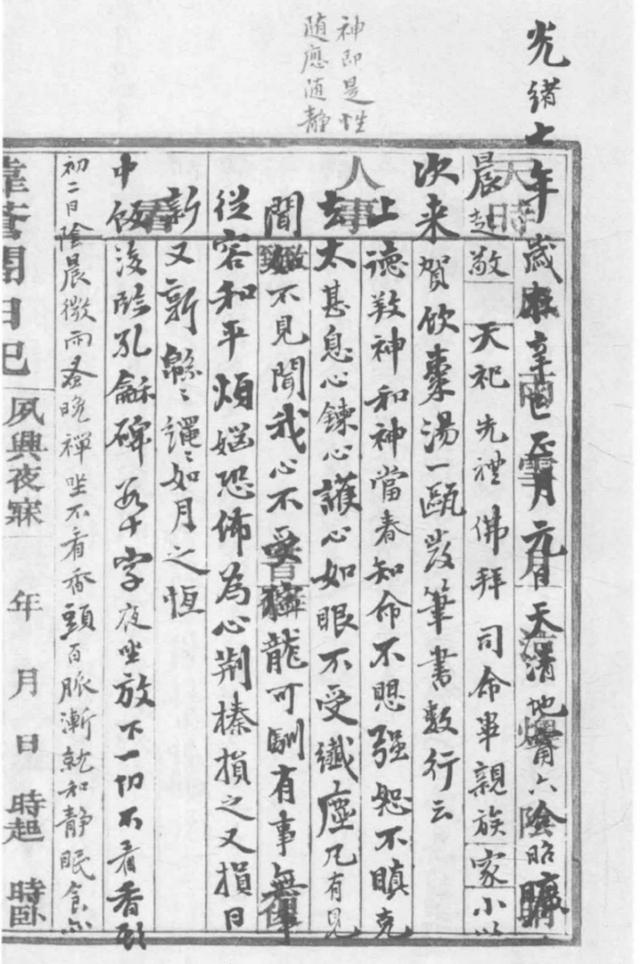 神即是性
随應随静
光緒七年歲在辛巳正月元日天清地甯六陰昭曠
晨起敬 天祀先禮佛拜 司命畢親族家小以
次来賀飲棗湯一甌發筆書数行云
上德敦神和神當春知命不愳强恕不瞋克
去太甚息心鍊心護心如眼不受纖塵凡有見
聞如不見聞我心不受獰龍可馴有事無事
從容和平煩惱恐佈為心荆榛損之又損日
新又新緜緜繩繩如月之恆
中飯後臨孔龢碑若干字夜坐放下一切不看香頭
初二日陰晨微雨蚤晚禪坐不看香頭百脈漸就和静眠食亦
日記 夙興夜寐 年 月 日 時起 時臥